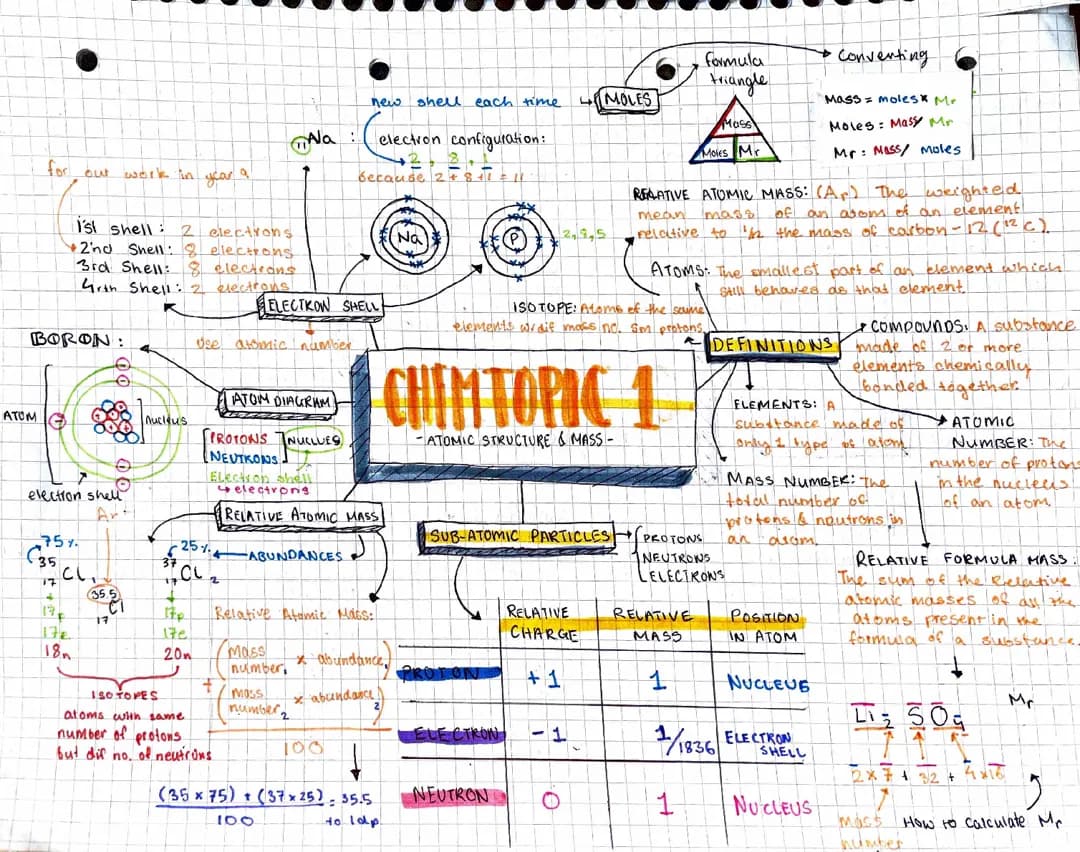 new shell each time
MOLES
formula
triangle
Mass
Moles
Mr
Converting
Mass = moles × Mr
Moles = Mass/ Mr
Mr = Mass/ Moles
11 Na :
electron configuration:
2, 8, 1
because 2+8+1 = 11
for our work in year 9
1'st shell: 2 electrons
2'nd Shell: 8 electrons
3rd Shell: 8 electrons
4rth Shell: 2 electrons
Na
P
2,8,5
ELECTRON SHELL
use atomic number
RELATIVE ATOMIC MASS: (Ar) The weighted
mean mass of an atom of an element
relative to 1/2 the mass of carbon-12 (12C).
ATOMS: The smallest part of an element which
still behaves as that element.
ISOTOPE: Atoms of the same
elements w/dif mass no. Sm protons.
DEFINITIONS
COMPOUNDS: A substance
made of 2 or more
elements chemically
bonded together.
ELEMENTS: A
substance made of
only 1 type of atom
ATOMIC
NUMBER: The
number of protons
in the nucleus
of an atom.
MASS NUMBER: The
total number of
protons & neutrons in
an atom.
RELATIVE FORMULA MASS:
The sum of the Relative
atomic masses of all the
atoms present in the
formula of a substance.
Mr
Li2 SO4
2 × 7 + 32 + 4 × 16
mass
number
How to calculate Mr
CHEMTOPIC 1
- ATOMIC STRUCTURE & MASS -
BORON:
ATOM
Nucleus
electron shell
ATOM DIAGRAM
PROTONS
NEUTRONS
NUCLUES
Electron shell
electrons
RELATIVE ATOMIC MASS
Ar
75%
25%
ABUNDANCES
35 17 Cl 1
35.5 17 Cl
37 17 Cl 2
17p
17e
18n
17p
17e
20n
ISOTOPES
atoms with same
number of protons
but dif no. of neutrons
Relative Atomic Mass:
(mass number1 × abundance1)
+
(mass number2 × abundance2)
100
(35 × 75) + (37 × 25) = 35.5
100
to 1dp
SUB-ATOMIC PARTICLES
PROTONS
NEUTRONS
ELECTRONS
RELATIVE CHARGE
RELATIVE MASS
POSITION IN ATOM
PROTON +1 1 NUCLEUS
ELECTRON -1 1/1836 ELECTRON SHELL
NEUTRON 0 1 NUCLEUS